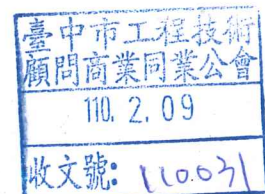 臺中市工程技術
顧問商業同業公會
110. 2. 09
收文號: 110.031